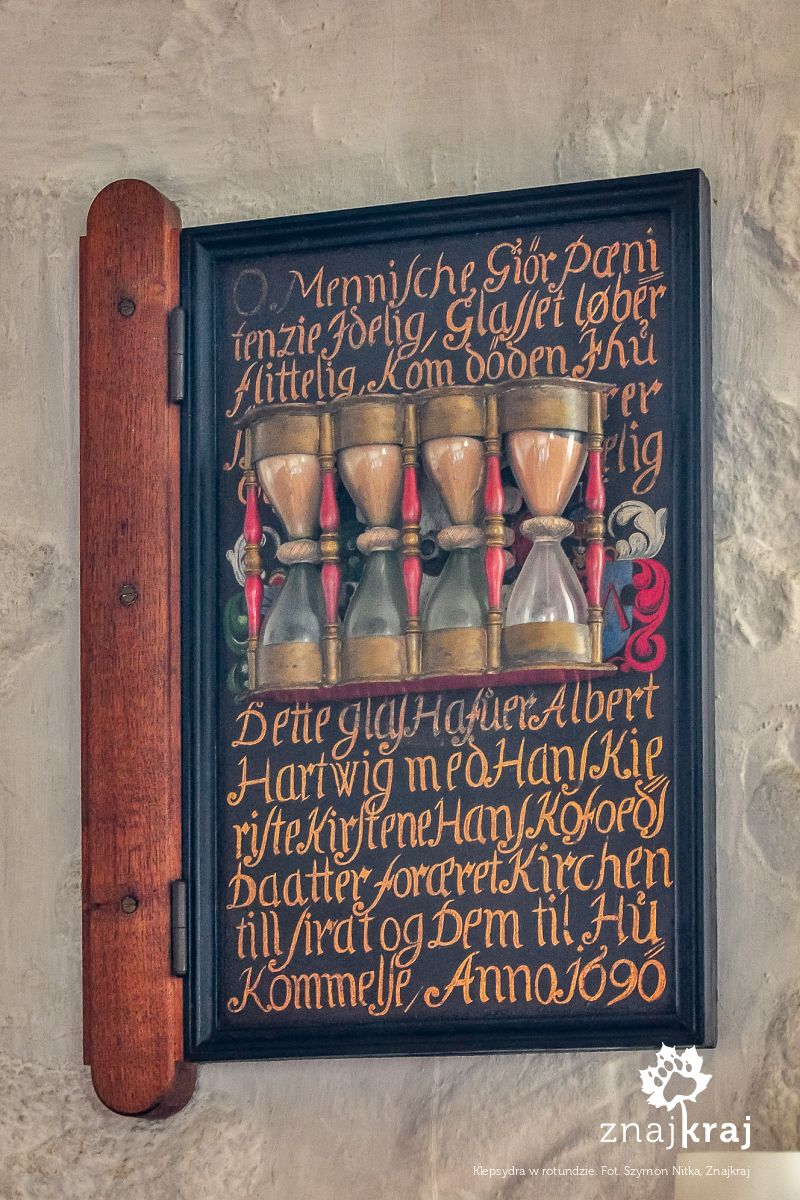 O. Menniſche, Giör Pœni=
tenzie Idelig, Glaſſet løber
flittelig, Kom döden Ihů
rer
elig
Dette glaſ Hafůer Albert
Hartwig med Hanſ Kie=
riſte Kirſtene Hanſ Kofoedſ
Daatter foræret Kirchen
till ſirat og Dem til Hů=
Kommelſe, Anno 1690
znajkraj
Klepsydra w rotundzie. Fot. Szymon Nitka, Znajkraj